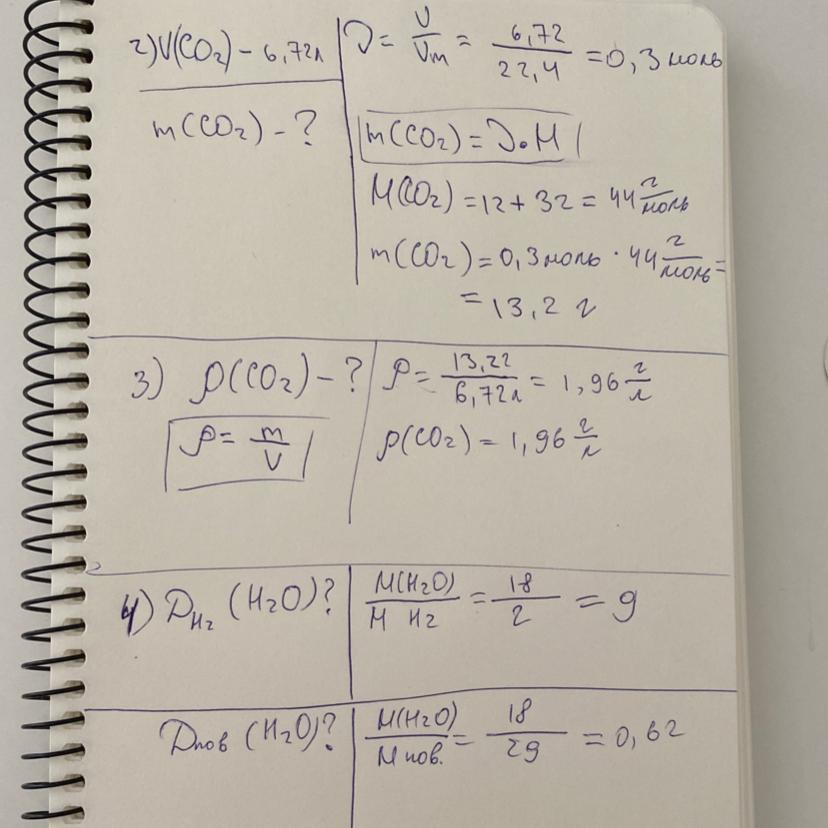 2) V(CO₂) – 6,72л
m(CO₂) – ?
ν = V/Vm = 6,72/22,4 = 0,3 моль
m(CO₂) = ν · M
M(CO₂) = 12 + 32 = 44 г/моль
m(CO₂) = 0,3 моль · 44 г/моль =
= 13,2 г
3) ρ(CO₂) – ?
ρ = m/V
ρ = 13,2г/6,72л = 1,96 г/л
ρ(CO₂) = 1,96 г/л
4) D H₂ (H₂O)?
M(H₂O)/M H₂ = 18/2 = 9
Dпов (H₂O)?
M(H₂O)/M пов. = 18/29 = 0,62